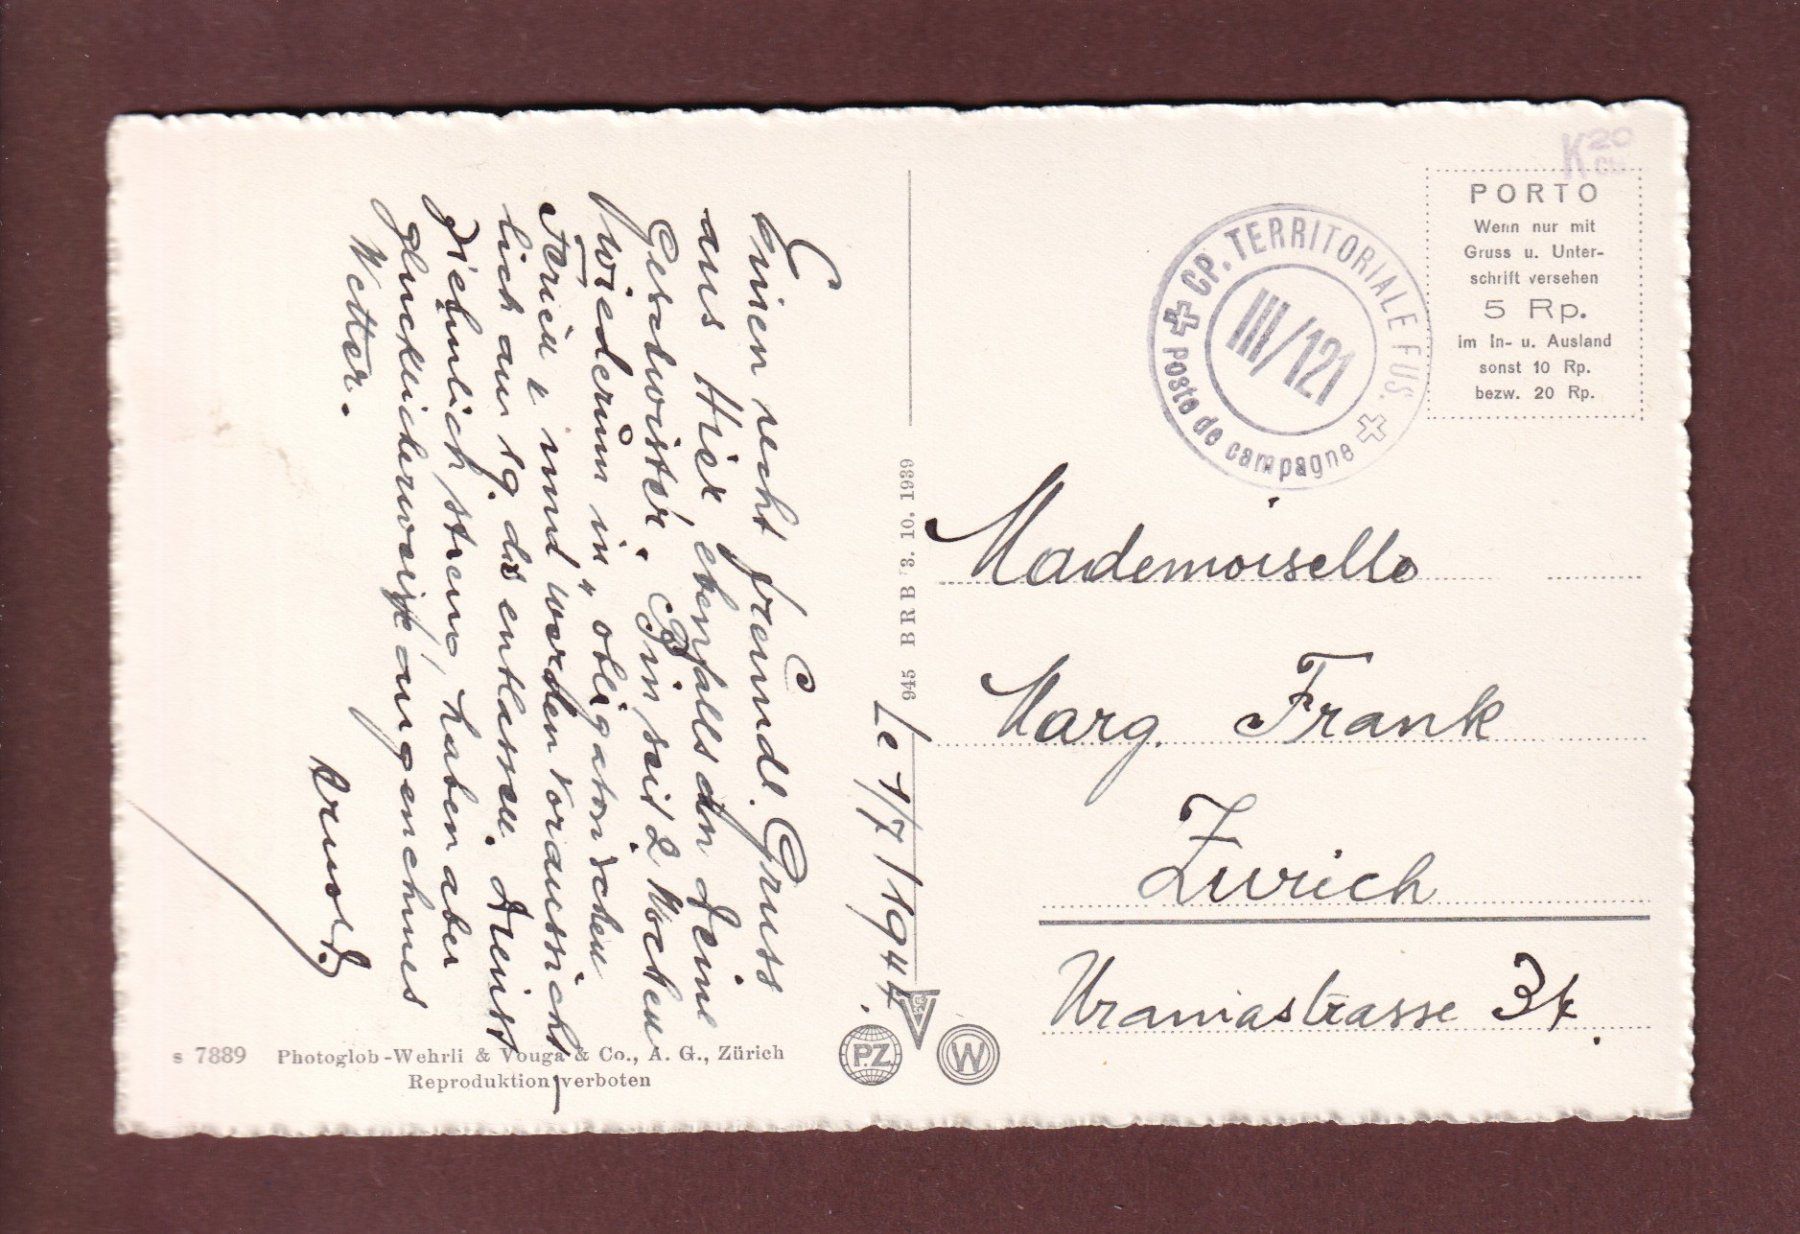 Le 1/7/1944.
Einen recht freundl. Gruss
aus Hier ebenfalls an Deine
Geschwister. Bin seit 2 Wochen
wiederum in „obligatorischen
Ferien" und werden voraussicht-
lich am 19. ds entlassen. Dienst
ziehmlich streng, haben aber
glücklicherweise angenehmes
Wetter.
Arnold
s 7889 Photoglob-Wehrli & Vouga & Co., A. G., Zürich
Reproduktion verboten
945 BRB 3. 10. 1939
PZ
W
K 20
PORTO
Wenn nur mit
Gruss u. Unter-
schrift versehen
5 Rp.
im In- u. Ausland
sonst 10 Rp.
bezw. 20 Rp.
CP. TERRITORIALE FUS.
III/121
poste de campagne
Mademoiselle
Marg. Frank
Zürich
Uraniastrasse